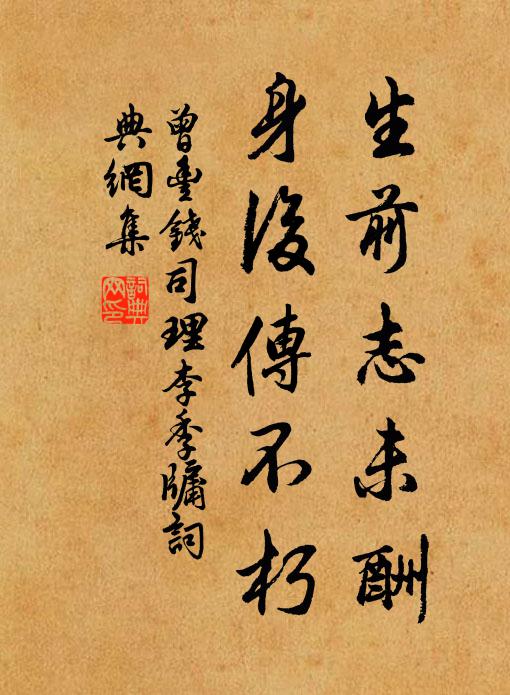 生前志未酬
身後傳不朽
曾豐錢司理李季牗詞
典網集
詞典網印